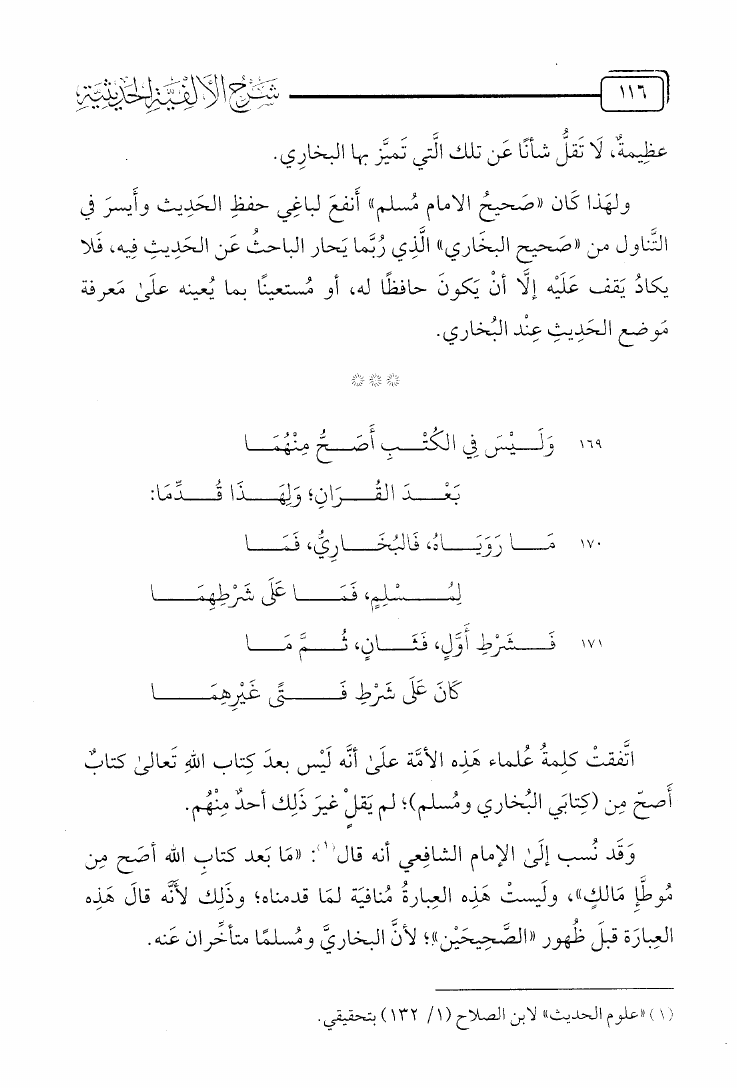 ١١٦ شَرْحُ الأَلْفِيَّةِ الحَدِيثِيَّةِ
عظِيمةٌ، لَا تَقلُّ شأنًا عَن تلك الَّتي تَميَّز بها البخارِي.
ولهَذا كَان «صَحيحُ الامام مُسلم» أَنفعَ لباغِي حفظِ الحَديث وأَيسرَ في
التَّناول من «صَحيح البخَاري» الَّذي رُبَّما يَحار الباحثُ عَن الحَديثِ فِيه، فَلا
يكادُ يَقف عَلَيْه إلَّا أنْ يَكونَ حافظًا له، أو مُستعينًا بما يُعينه علىٰ مَعرفة
مَوضع الحَدِيثِ عِنْد البُخاري.
١٦٩ وَلَـــيْسَ فِي الكُتْـــبِ أَصَـــحُّ مِنْهُمَـــا
بَعْـــدَ القُـــرَانِ؛ وَلِهَـــذَا قُـــدِّمَا:
١٧٠ مَـــا رَوَيَـــاهُ، فَالبُخَـــارِيُّ، فَمَـــا
لِمُـــسْلِمٍ، فَمَـــا عَلَى شَرْطِهِمَـــا
١٧١ فَـــشَرْطِ أَوَّلٍ، فَثَـــانٍ، ثُـــمَّ مَا
كَانَ عَلَى شَرْطِ فَـــتًى غَيْرِهِمَـــا
اتَّفقتْ كلِمةُ عُلماء هَذه الأمَّة علَىٰ أنَّه لَيْس بعدَ كِتاب اللهِ تَعالىٰ كتابٌ
أَصحّ مِن (كِتابَي البُخاري ومُسلم)؛ لم يَقلْ غيرَ ذَلِك أحدٌ مِنْهُم.
وَقَد نُسب إلَىٰ الإمام الشافِعي أنه قال(١): «مَا بَعد كتابِ الله أصَح مِن
مُوطَّإ مَالكٍ»، ولَيستْ هَذه العِبارةُ مُنافيَة لمَا قدمناه؛ وذَلِك لأنَّه قالَ هَذه
العِبارَة قبلَ ظُهور «الصَّحِيحَيْن»؛ لأنَّ البخاريَّ ومُسلمًا متأخِّران عَنه.
(١) «علوم الحديث» لابن الصلاح (١/ ١٣٢) بتحقيقي.